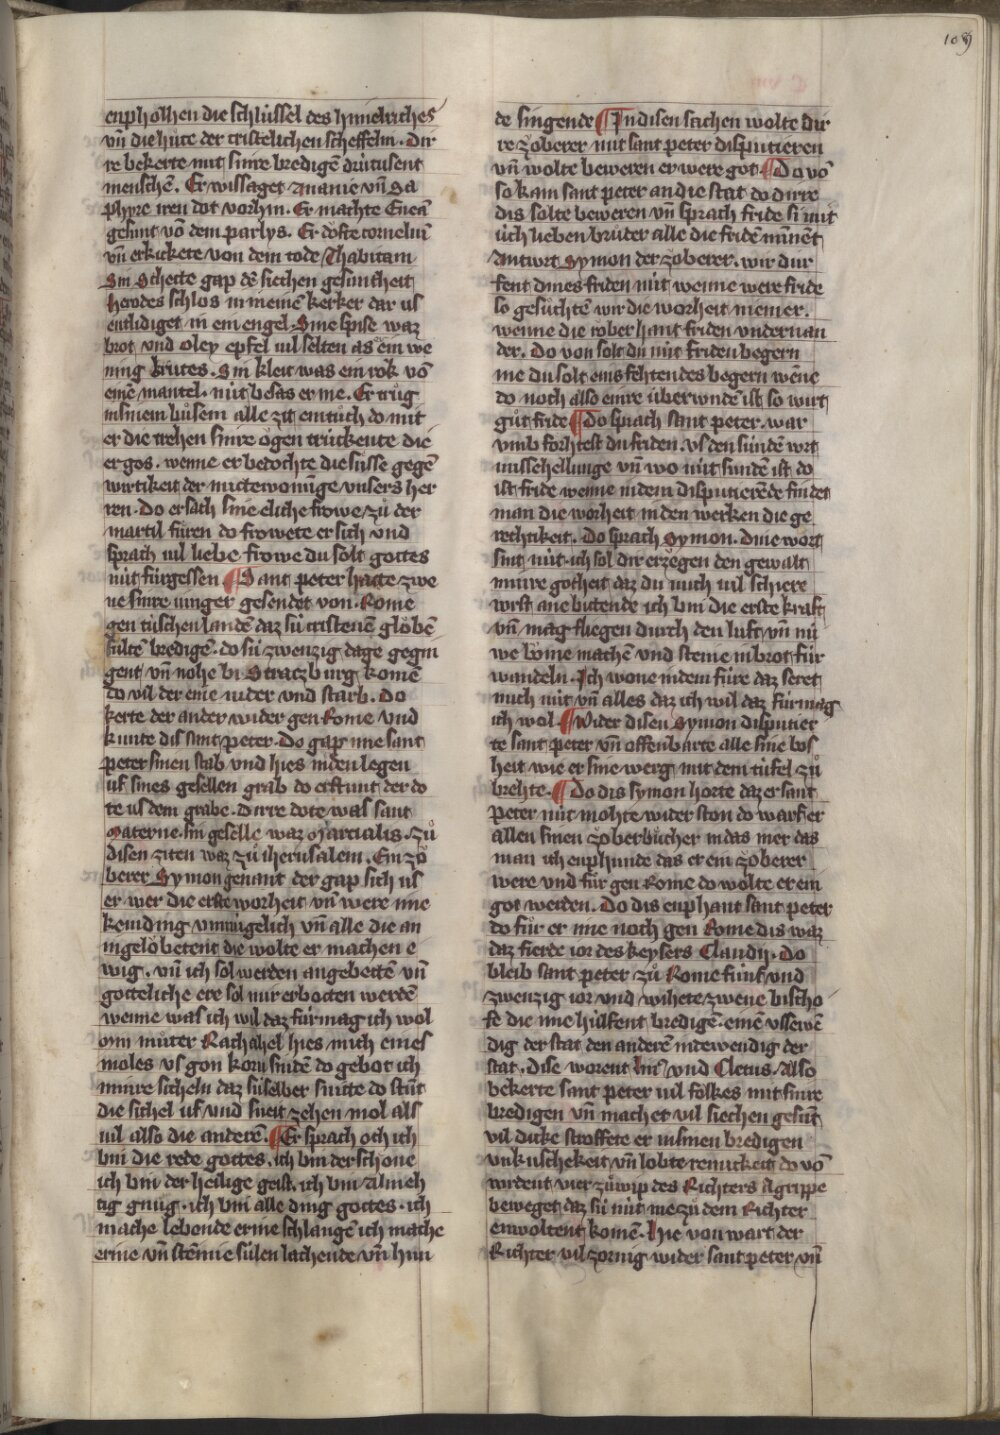 109
enpholhen die schlüssel des himelriches
vn̄ die hüte der cristelichen scheffelin. Dir
re bekerte mit sinre bredigē drütusent
menschē. Er wissaget Ananie vn̄ Sa
phyre iren dot vorhin. Er machte Eneā
gesunt vō dem parlys. Er dofte corneliū
vn̄ erkickete von dem tode Thabitam
Sin Schette gap dē siechen gesuntheit
Herodes schlos in in einē kerker dar us
entlidiget in ein engel. Sine spise waz
brot vnd oley epfel vil selten as er ein we
ning krutes. Sin kleit was ein rok vō
einē mantel. nüt besas er me. Er trůg
in sinem bůsem alle zit ein tůch do mit
er die trehen sinre ögen trückente die
er gos. wenne er bedochte die süsse gegē
wirtikeit der mittewonūge vnsers her
ren. Do er sach sine eliche frowe zů der
martil fůren do frowete er sich vnd
sprach vil liebe frowe du solt gottes
nüt fürgessen ¶ Sant peter hatte zwe
ne sinre iunger gesendet von Rome
gen tüschen landē daz sü cristenē glöbē
sültē bredigē. do sü zwenzig dage gegin
gent vn̄ nohe bi Straczburg komē
do viel der eine nider vnd starb. Do
kerte der ander wider gen Rome vnd
kunte dis sant peter. Do gap ime sant
peter sinen stab vnd hies in den legen
uf sines gesellen grab do erstunt der do
te us dem grabe. Dirre dote was sant
Materne. sin geselle waz Marcialis. Zů
disen ziten waz zů iherusalem. Ein zö
berer Symon genant der gap sich us
er wer die erste worheit vn̄ were ime
kein ding vnmügelich vn̄ alle die an
in gelöbetent die wolte er machen e
wig. vn̄ ich sol werden angebettē vn̄
gotteliche ere sol mir erbotten werdē
wenne was ich wil daz fürmag ich wol
min můter Rachahel hies mich eines
moles vs gon korn snidē do gebot ich
minre sicheln daz sü selber snitte do stůt
die sichel uf vnd sneit zehen mol als
vil also die anderē. ¶ Er sprach och ich
bin die rede gottes. ich bin der schone
ich bin der heilige geist. ich bin almeh
tig gnůg. ich bin alle ding gottes. ich
mache lebende erine schlangē ich mache
erine vn̄ steinine sülen lachende vn̄ hun
de singende ¶ In disen sachen wolte dir
re zöberer mit sant peter disputieren
vn̄ wolte beweren er were got. ¶ Do vō
so kam sant peter an die stat do dirre
dis solte beweren vn̄ sprach fride si mit
üch lieben brüder alle die fridē minnēt
Antwrt Symon der zöberer. wir dür
fent dines friden nüt wenne were fride
so gesüchtē wir die worheit niemer.
wenne die röber hant friden vnder nan
der. do von solt du nüt friden begern
me du solt eins fehtendes begern wēne
do noch also einre überwndē ist so wirt
gůt fride ¶ Do sprach sant peter. war
vmb förhtest du friden. vs den sündē wrt
missehellunge vn̄ wo nüt sündē ist do
ist fride wenne in dem disputierēde findet
man die worheit in den werken die ge
rechtikeit. Do sprach Symon. dine wort
sint nüt. ich sol dir erzögen den gewalt
minre gotheit daz du mich vil schiere
wrst ane bütende ich bin die erste kraft
vn̄ mag fliegen durch den luft vn̄ nü
we böime machē vnd steine in brot für
wandeln. Ich wone in dem füre daz seret
mich nüt vn̄ alles daz ich wil daz fürmag
ich wol ¶ Wider disen Symon disputier
te sant peter vn̄ offenbarte alle sine bos
heit wie er sine werg mit dem tüfel zů
brehte. ¶ Do dis symon horte daz er sant
Peter nüt mohte wider ston do warf er
allen sinen zöberbücher in das mer das
man ich enphinde das er ein zöberer
were vnd für gen Rome do wolte er ein
got werden. Do dis enphant sant peter
do für er ime noch gen Rome dis waz
daz fierde ior des keysers Claudij. Do
bleib sant peter zů Rome fünf vnd
zwenzig ior vnd wihete zwene bischo
fe die ime hülfent bredigē. einē vssewē
dig der stat den anderē indewendig der
stat. dise worent linꝰ vnd Cletus. Also
bekerte sant peter vil folkes mit sinre
bredigen vn̄ machet vil siechen gesūt
vil dicke stroffete er in sinen bredigen
vnkuschekeit vn̄ lobte reinickeit do vō
wrdent vier zůwip des Richters Agrippe
beweget daz sü nüt me zů dem Richter
enwoltent komē. Hie von wart der
Richter vil zornig wider sant peter vn̄